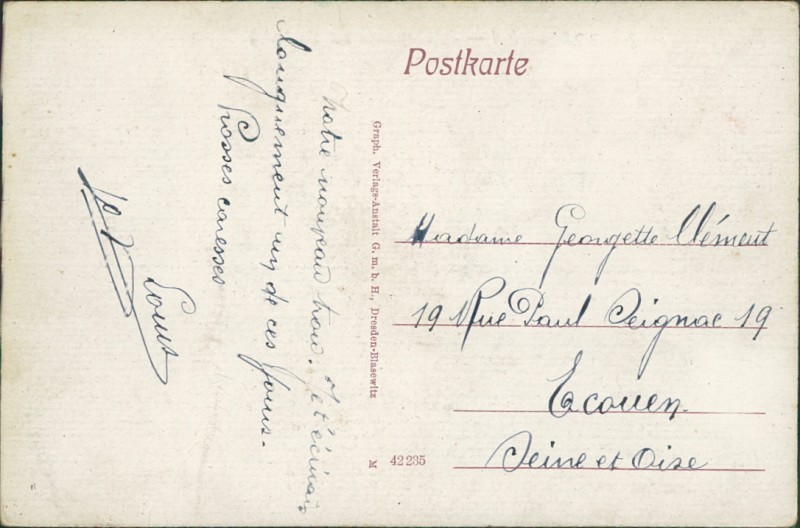 Postkarte
notre nouveau trou. Je t'écrirai
longuement un de ces jours.
Grosses caresses
Louis
Graph. Verlags-Anstalt G. m. b. H., Dresden-Blasewitz
M 42235
Madame Georgette Clément
19 Rue Paul Seignac 19
Ecouen
Seine et Oise